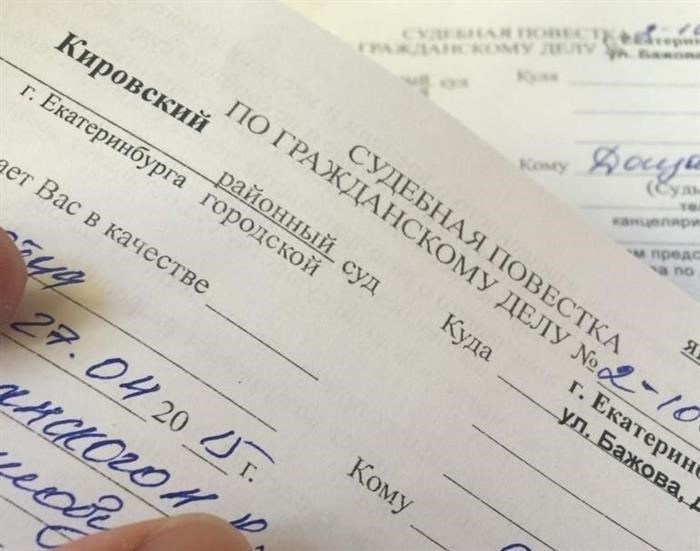 СУДЕБНАЯ ПОВЕСТКА
ПО ГРАЖДАНСКОМУ ДЕЛУ № 2-10
Кировский
районный суд
г. Екатеринбурга городской
ает Вас в качестве
27.04 2015 г.
Куда
г. Екатеринб
ул. Бажова, д
Кому
СУДЕБНАЯ ПОВЕСТКА
ГРАЖДАНСКОМУ ДЕЛУ
ул. Бажова
суд
Куда
Кому
(Судь
тел
канцеляри
м предс
а по